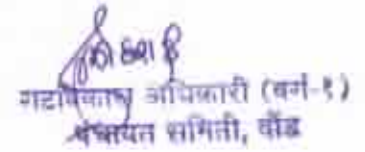 गटविकास अधिकारी (वर्ग-१)
पंचायत समिती, दौंड